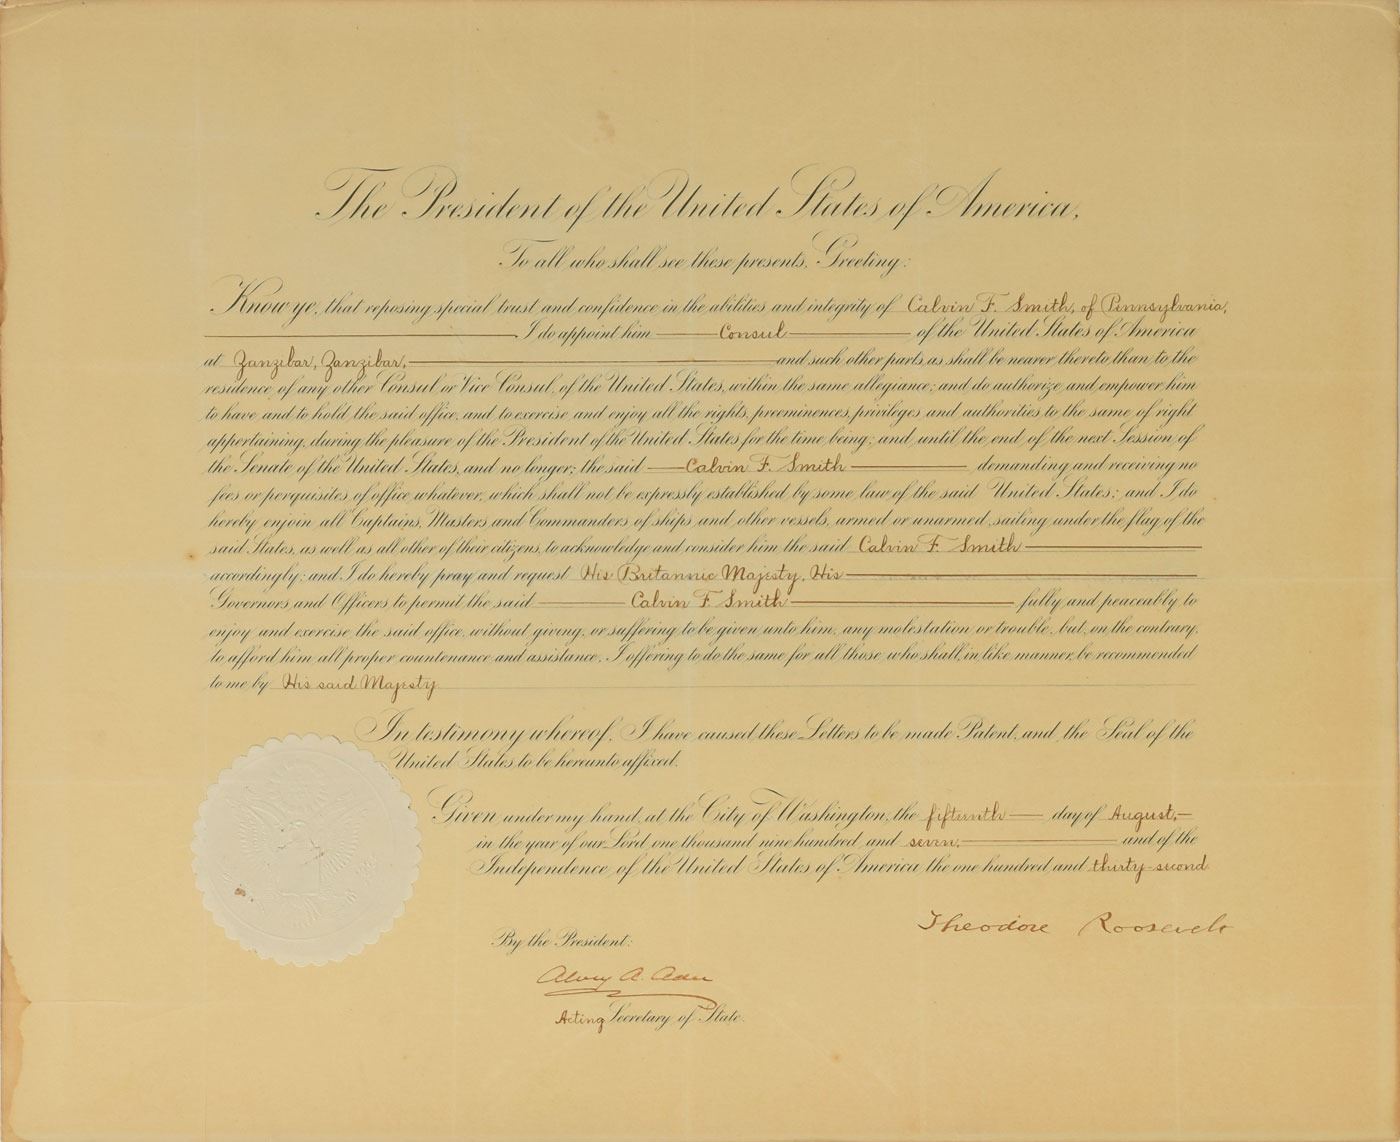 The President of the United States of America,
To all who shall see these presents, Greeting:
Know ye, that reposing special trust and confidence in the abilities and integrity of Calvin F. Smith, of Pennsylvania,
I do appoint him Consul of the United States of America
at Zanzibar, Zanzibar, and such other parts as shall be nearer thereto than to the
residence of any other Consul or Vice Consul, of the United States, within the same allegiance; and do authorize and empower him
to have and to hold the said office, and to exercise and enjoy all the rights, preeminences, privileges and authorities to the same of right
appertaining, during the pleasure of the President of the United States for the time being; and until the end of the next Session of
the Senate of the United States, and no longer; the said Calvin F. Smith demanding and receiving no
fees or perquisites of office whatever, which shall not be expressly established by some law of the said United States; and I do
hereby enjoin all Captains, Masters and Commanders of ships and other vessels, armed or unarmed, sailing under the flag of the
said States, as well as all other of their citizens, to acknowledge and consider him the said Calvin F. Smith
accordingly; and I do hereby pray and request His Britannic Majesty, His
Governors and Officers to permit the said Calvin F. Smith fully and peaceably to
enjoy and exercise the said office, without giving, or suffering to be given unto him, any molestation or trouble, but, on the contrary,
to afford him all proper countenance and assistance, I offering to do the same for all those who shall, in like manner, be recommended
to me by His said Majesty
In testimony whereof, I have caused these Letters to be made Patent, and the Seal of the
United States to be hereunto affixed.
Given under my hand, at the City of Washington, the fifteenth day of August,
in the year of our Lord one thousand nine hundred and seven, and of the
Independence of the United States of America the one hundred and thirty-second
Theodore Roosevelt
By the President:
Alvey A. Adee
Acting Secretary of State.